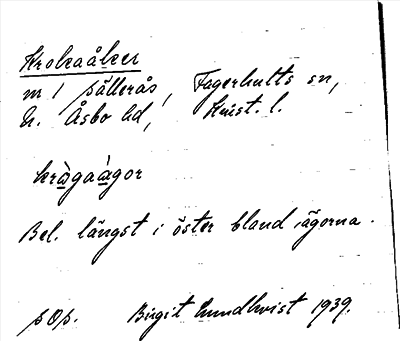 Krokaåker
m / Pällerås, Fagerhults sn,
N. Åsbo hd, Krist. l.
kràgaàgor
Bel. längst i öster bland ägorna.
pOp. Birgit Lundkvist 1939.